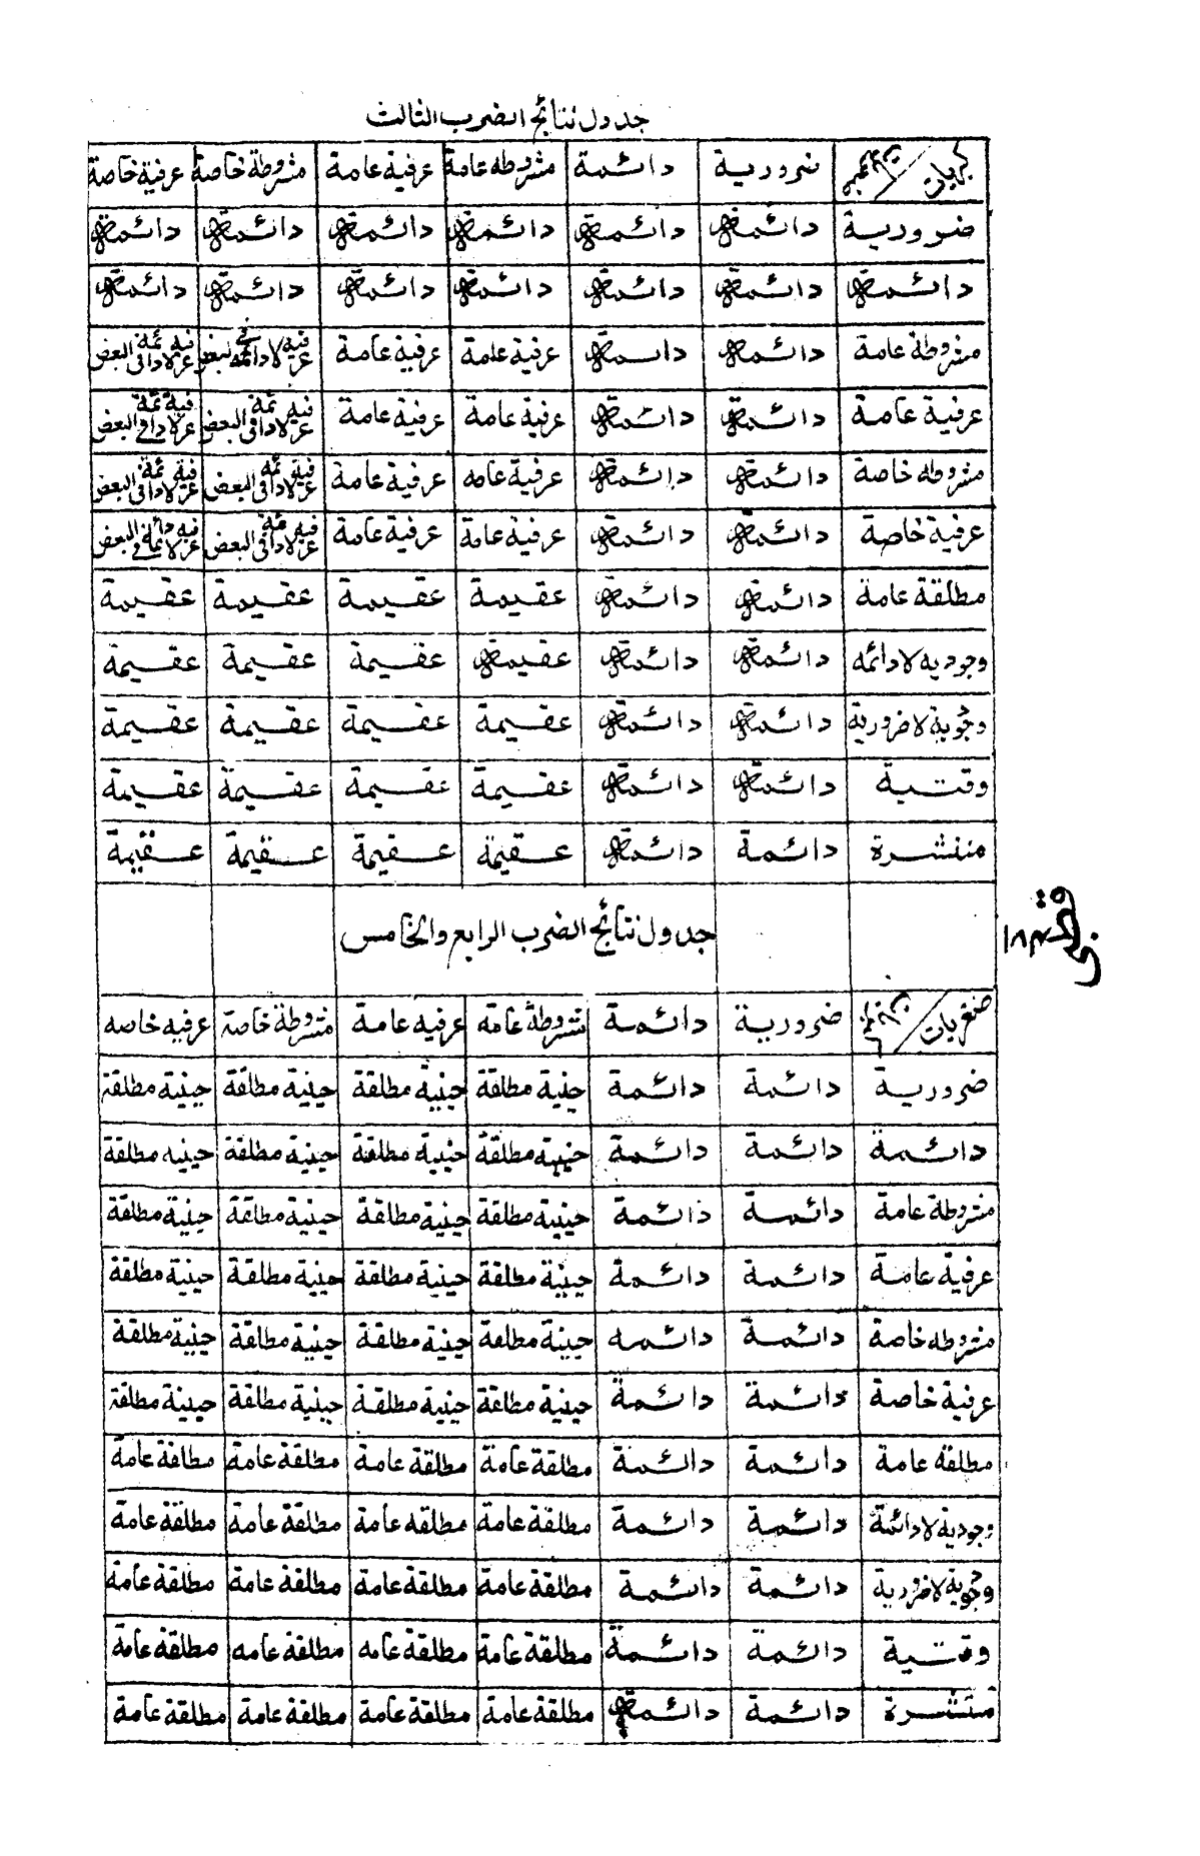 جدول نتائج الضرب الثالث
كبريات ضرورية دائمة مشروطه عامة عرفية عامة مشروطة خاصة عرفية خاصة
ضرورية دائمة دائمة دائمة دائمة دائمة دائمة
دائمة دائمة دائمة دائمة دائمة دائمة دائمة
مشروطة عامة دائمة دائمة عرفية عامة عرفية عامة عرفية لادائمه في البعض عرفية لادائمة في البعض
عرفية عامة دائمة دائمة عرفية عامة عرفية عامة عرفيه لادائمة في البعض عرفية لادائمة في البعض
مشروطه خاصة دائمة دائمة عرفية عامه عرفية عامة عرفيه لادائمة في البعض عرفية لادائمة في البعض
عرفية خاصة دائمة دائمة عرفية عامة عرفية عامة عرفيه لادائمة في البعض عرفيه لادائمة في البعض
مطلقة عامة دائمة دائمة عقيمة عقيمة عقيمة عقيمة
وجوديه لادائمه دائمة دائمة عقيمة عقيمة عقيمة عقيمة
وجودية لاضرورية دائمة دائمة عقيمة عقيمة عقيمة عقيمة
وقتية دائمة دائمة عقيمة عقيمة عقيمة عقيمة
منتشرة دائمة دائمة عقيمة عقيمة عقيمة عقيمة
جدول نتائج الضرب الرابع والخامس
صغريات ضرورية دائمة مشروطة عامه عرفيه عامة مشروطة خاصة عرفيه خاصه
ضرورية دائمة دائمة حينية مطلقة حينية مطلقة حينية مطلقة حينية مطلقة
دائمة دائمة دائمة حينية مطلقة حينية مطلقة حينية مطلقة حينيه مطلقة
مشروطة عامة دائمة دائمة حينية مطلقة حينية مطلقة حينية مطلقة حينية مطلقة
عرفية عامة دائمة دائمة حينية مطلقة حينية مطلقة حينية مطلقة حينية مطلقة
مشروطه خاصة دائمة دائمه حينية مطلقة حينية مطلقة حينية مطلقة حينية مطلقة
عرفية خاصة دائمة دائمة حينية مطلقة حينية مطلقة حينية مطلقة حينية مطلقة
مطلقه عامة دائمة دائمة مطلقة عامة مطلقة عامة مطلقة عامة مطلقة عامة
وجودية لادائمة دائمة دائمة مطلقة عامة مطلقه عامة مطلقة عامة مطلقة عامة
وجودية لاضرورية دائمة دائمة مطلقة عامة مطلقة عامة مطلقة عامة مطلقة عامة
وقتية دائمة دائمة مطلقة عامة مطلقة عامه مطلقة عامه مطلقة عامة
منتشرة دائمة دائمة مطلقة عامة مطلقة عامة مطلقة عامة مطلقة عامة